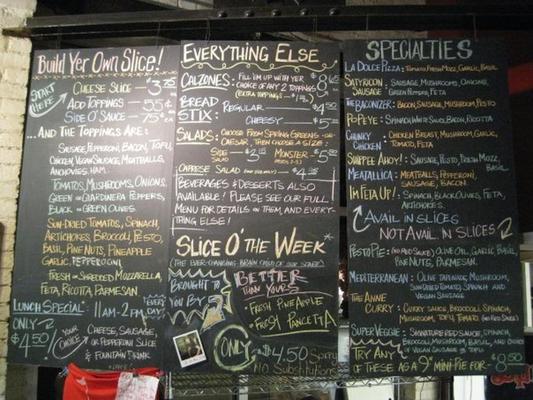 Build Yer Own Slice!
START HERE
CHEESE SLICE - 3.75
ADD TOPPINGS - 55¢
SIDE O' SAUCE - 75¢
...AND THE TOPPINGS ARE:
SAUSAGE, PEPPERONI, BACON, TOFU,
CHICKEN, VEGAN SAUSAGE, MEATBALLS,
ANCHOVIES, HAM.
TOMATOS, MUSHROOMS, ONIONS,
GREEN OR GIARDINERA PEPPERS,
BLACK OR GREEN OLIVES.
SUN-DRIED TOMATOS, SPINACH,
ARTICHOKES, BROCCOLI, PESTO,
BASIL, PINE NUTS, PINEAPPLE
GARLIC, PEPPERCONI
FRESH OR SHREDDED MOZZARELLA,
FETA, RICOTTA, PARMESAN
LUNCH SPECIAL: 11AM-2PM EVERY DAY
ONLY $4.50
YOUR CHOICE
CHEESE, SAUSAGE
OR PEPPERONI SLICE
& FOUNTAIN DRINK
EVERYTHING ELSE
CALZONES: FILL 'EM UP WITH YER
CHOICE OF ANY 2 TOPPINGS
(EXTRA TOPPINGS)
BREAD STIX:
REGULAR $4.50
CHEESY
SALADS: CHOOSE FROM SPRING GREENS OR
CAESAR, THEN CHOOSE A SIZE:
SIDE SALAD
MONSTER
CAPRESE SALAD
BEVERAGES & DESSERTS ALSO
AVAILABLE! PLEASE SEE OUR FULL
MENU FOR DETAILS ON THEM, AND EVERY-
THING ELSE!
SLICE O' THE WEEK
(THE EVER-CHANGING BRAIN CHILD OF OUR STAFF)
BROUGHT TO
YOU BY
BETTER
THAN YOURS
• FRESH PINEAPPLE
• FRESH PANCETTA
ONLY $4.50 SORRY
NO SUBSTITUTIONS
SPECIALTIES
LA DOLCE PIZZA: TOMATO, FRESH MOZZ, GARLIC, BASIL
SATYRICON: SAUSAGE, MUSHROOMS, ONIONS,
SAUSAGE GREEN PEPPER, FETA
THE BACONIZER: BACON, SAUSAGE, MUSHROOM, PESTO
POPEYE: SPINACH, WHITE SAUCE, BACON, RICOTTA
CHUNKY CHICKEN: CHICKEN BREAST, MUSHROOM, GARLIC,
TOMATO, FETA
SWIPPEE AHOY!: SAUSAGE, PESTO, FRESH MOZZ,
BASIL
MEATALLICA: MEATBALLS, PEPPERONI,
SAUSAGE, BACON.
I'M FETA UP!: SPINACH, BLACK OLIVES, FETA,
ARTICHOKES.
AVAIL IN SLICES
NOT AVAIL IN SLICES
PESTO PIE: (NO RED SAUCE) OLIVE OIL, GARLIC, BASIL
PINE NUTS, PARMESAN.
MEDITERRANEAN: OLIVE TAPENADE, MUSHROOM,
SUNDRIED TOMATO, SPINACH AND
VEGAN SAUSAGE
THE ANNE CURRY: CURRY SAUCE, BROCCOLI, SPINACH,
MUSHROOM, TOFU, TOMATO (NO RED SAUCE)
SUPER VEGGIE: SIGNATURE RED SAUCE, SPINACH,
BROCCOLI, MUSHROOM, BASIL, AND CHOICE
OF VEGAN SAUSAGE OR TOFU
TRY ANY
OF THESE AS A 9" MINI-PIE FOR - 8.50